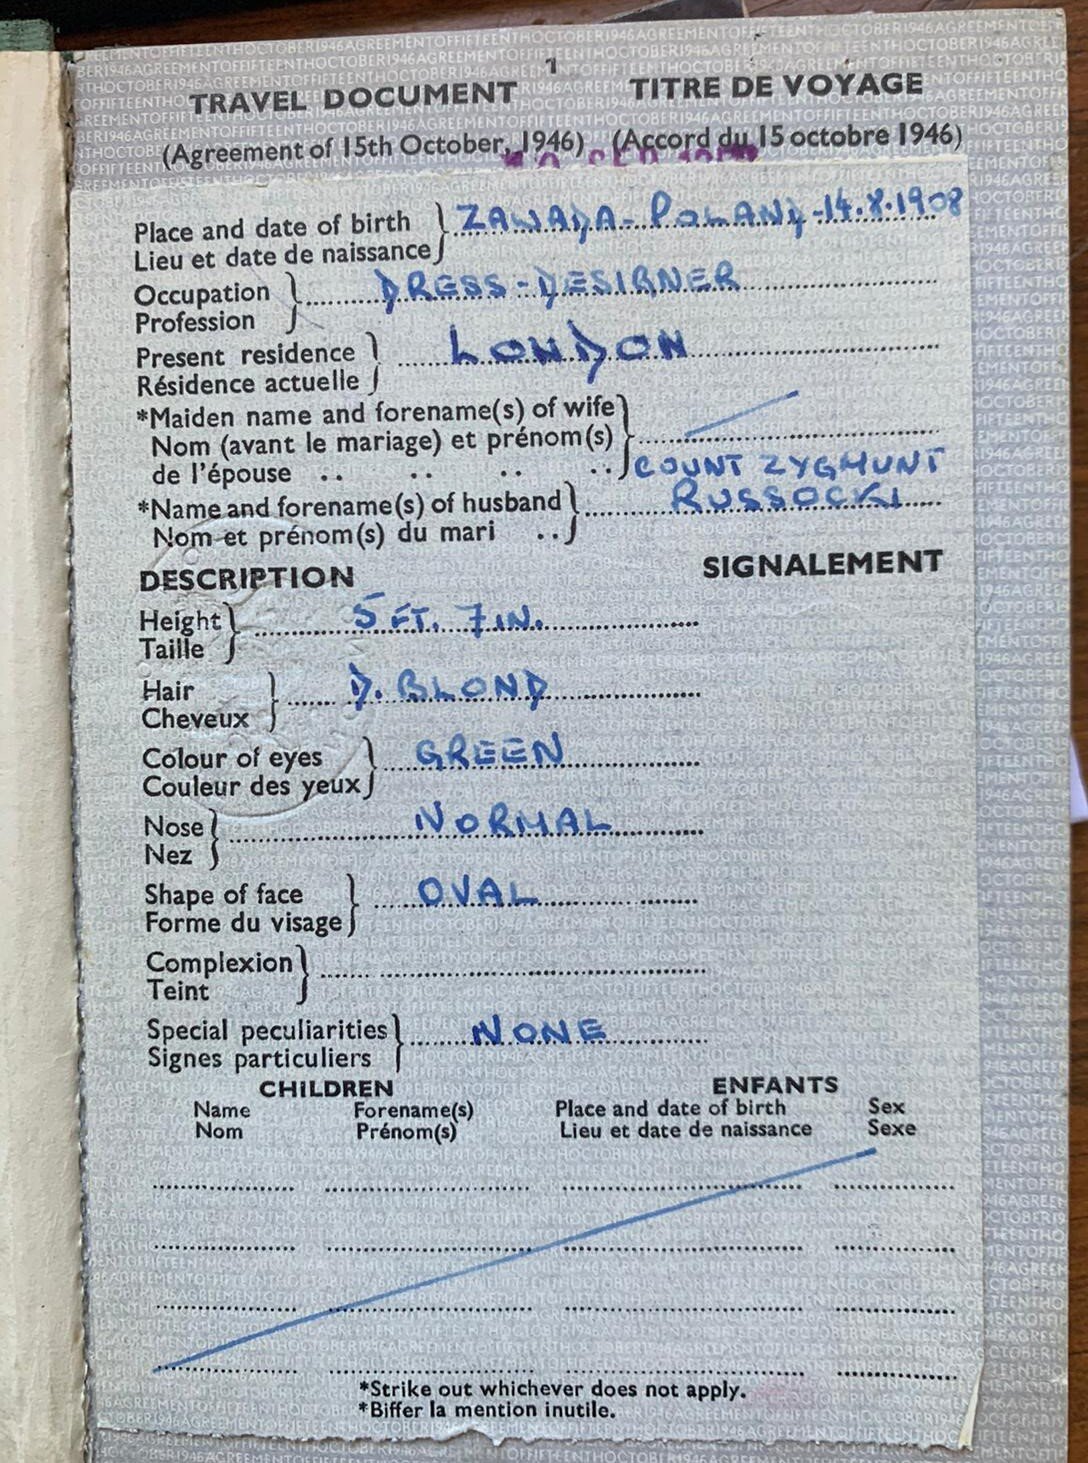 1
TRAVEL DOCUMENT TITRE DE VOYAGE
(Agreement of 15th October, 1946) (Accord du 15 octobre 1946)
Place and date of birth ZAWADA - POLAND - 14.8.1908
Lieu et date de naissance
Occupation DRESS - DESIGNER
Profession
Present residence LONDON
Résidence actuelle
*Maiden name and forename(s) of wife
Nom (avant le mariage) et prénom(s)
de l'épouse .. .. .. ..
COUNT ZYGMUNT
*Name and forename(s) of husband RUSSOCKI
Nom et prénom(s) du mari ..
DESCRIPTION SIGNALEMENT
Height 5 FT. 7 IN.
Taille
Hair D. BLOND
Cheveux
Colour of eyes GREEN
Couleur des yeux
Nose NORMAL
Nez
Shape of face OVAL
Forme du visage
Complexion
Teint
Special peculiarities NONE
Signes particuliers
CHILDREN ENFANTS
Name Forename(s) Place and date of birth Sex
Nom Prénom(s) Lieu et date de naissance Sexe
*Strike out whichever does not apply.
*Biffer la mention inutile.